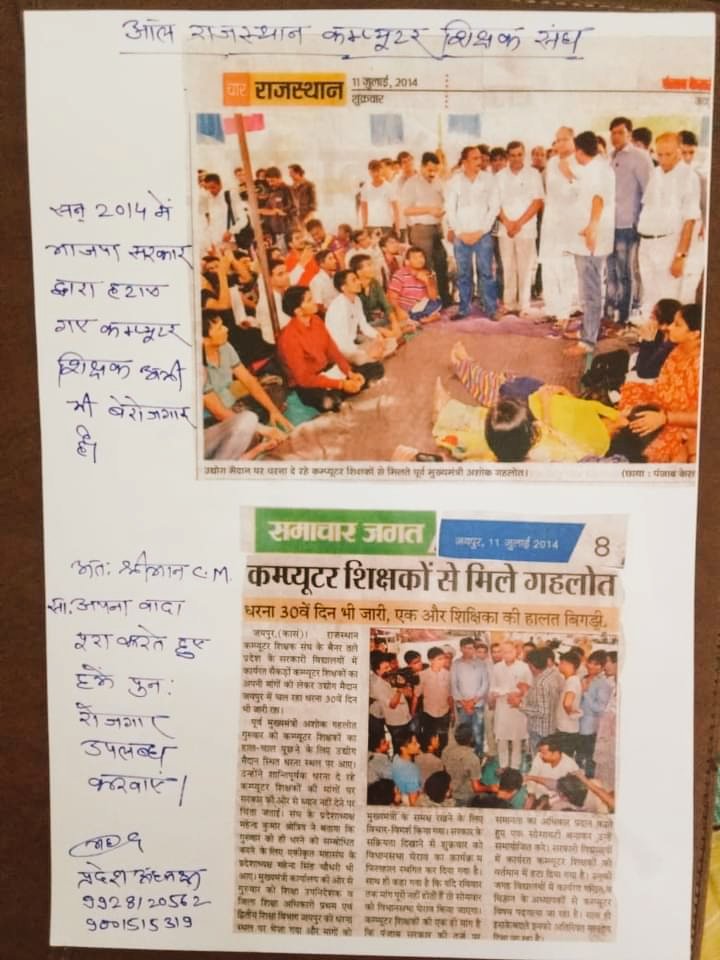 ऑल राजस्थान कम्प्यूटर शिक्षक संघ
चार राजस्थान
11 जुलाई, 2014
शुक्रवार
सन् 2014 में
भाजपा सरकार
द्वारा हटाए
गए कम्प्यूटर
शिक्षक अभी
भी बेरोजगार
है।
उद्योग मैदान पर धरना दे रहे कम्प्यूटर शिक्षकों से मिलते पूर्व मुख्यमंत्री अशोक गहलोत।
(छाया : पंजाब केस
अतः श्रीमान C.M.
सा. अपना वादा
पूरा करते हुए
हमें पुनः
रोजगार
उपलब्ध
करवाएं।
प्रदेश अध्यक्ष
9928120562
9001515319
समाचार जगत
जयपुर, 11 जुलाई 2014
8
कम्प्यूटर शिक्षकों से मिले गहलोत
धरना 30वें दिन भी जारी, एक और शिक्षिका की हालत बिगड़ी.
जयपुर,(कासं)। राजस्थान
कम्प्यूटर शिक्षक संघ के बैनर तले
प्रदेश के सरकारी विद्यालयों में
कार्यरत सैंकड़ों कम्प्यूटर शिक्षकों का
अपनी मांगों को लेकर उद्योग मैदान
जयपुर में चल रहा धरना 30वें दिन
भी जारी रहा।
पूर्व मुख्यमंत्री अशोक गहलोत
गुरुवार को कम्प्यूटर शिक्षकों का
हाल-चाल पूछने के लिए उद्योग
मैदान स्थित धरना स्थल पर आए।
उन्होंने शान्तिपूर्वक धरना दे रहे
कम्प्यूटर शिक्षकों की मांगों पर
सरकार की ओर से ध्यान नहीं देने पर
चिंता जताई। संघ के प्रदेशाध्यक्ष
महेन्द्र कुमार श्रोत्रिय ने बताया कि
गुरुवार को ही धरने को सम्बोधित
करने के लिए एकीकृत महासंघ के
प्रदेशाध्यक्ष महेन्द्र सिंह चौधरी भी
आए। मुख्यमंत्री कार्यालय की ओर से
गुरुवार को शिक्षा उपनिदेशक व
जिला शिक्षा अधिकारी प्रथम एवं
द्वितीय शिक्षा विभाग जयपुर को धरना
स्थल पर भेजा गया और मांगों को
मुख्यमंत्री के समक्ष रखने के लिए
विचार-विमर्श किया गया। सरकार के
सक्रियता दिखाने में शुक्रवार को
विधानसभा घेराव का कार्यक्रम
फिलहाल स्थगित कर दिया गया है।
साथ ही कहा गया है कि यदि रविवार
तक मांग पूरी नहीं होती है तो सोमवार
को विधानसभा घेराव किया जाएगा।
कम्प्यूटर शिक्षकों की एक ही मांग है
कि पंजाब सरकार की तर्ज पर
समानता का अधिकार प्रदान करते
हुए एक सोसायटी बनाकर उनमें
समायोजित करें। सरकारी विद्यालयों
में कार्यरत कम्प्यूटर शिक्षकों को
वर्तमान में हटा दिया गया है। उनकी
जगह विद्यालयों में कार्यरत गणित व
विज्ञान के अध्यापकों से कम्प्यूटर
विषय पढ़वाया जा रहा है। साथ ही
इसके बदले इनको अतिरिक्त मानदेय